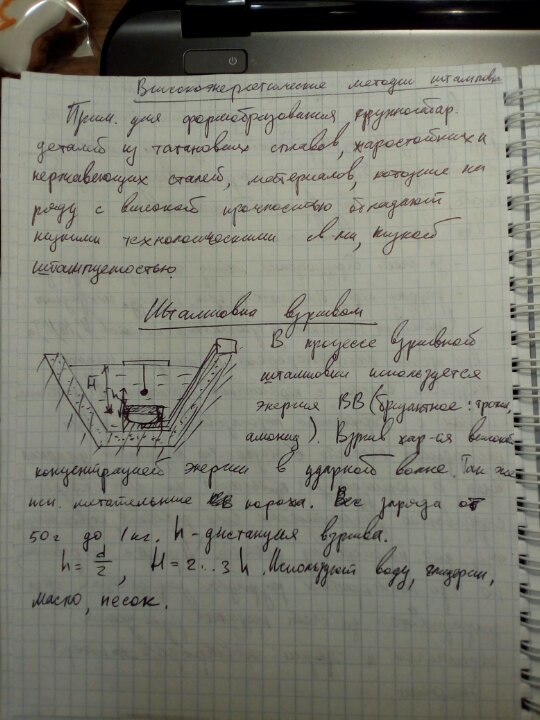 Высокоэнергетические методы штамповки
Прим. для формообразования крупногабар.
деталей из титановых сплавов, жаростойких и
нержавеющих сталей, материалов, которые на
ряду с высокой прочностью обладают
низкими технологическими св-ми, низкой
штампуемостью.
Штамповка взрывом
В процессе взрывной
штамповки используется
энергия ВВ (бризантное: тротил,
амонид). Взрыв хар-ся высокой
H
h
концентрацией энергии в ударной волне. Так же
исп. метательные ВВ пороха. Вес заряда от
50г до 1кг. h - дистанция взрыва.
h = d/2, H = 2..3 h. Используют воду, глицерин,
масло, песок.